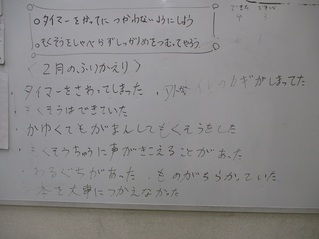 ○タイマーをかってに つかわないようにしよう
○もくそうをしゃべらずしっかりめをつむってやろう
〈2月のふりかえり〉
・タイマーをさわってしまった
・のカギがしまってた
・もくそうはできていた
・かゆくてもがまんしてもくそうをした
・もくそうちゅうに声がきこえることがあった
・わるぐちがあった ・ものがちらかっていた
・本を大事につかえなかった